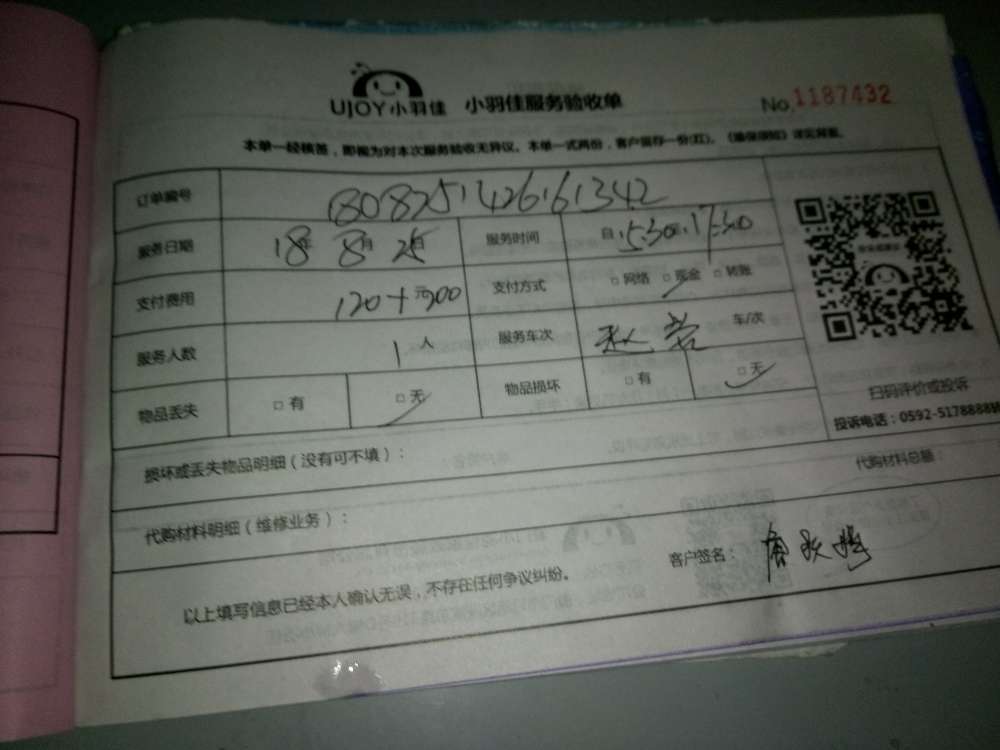 UJOY小羽佳 小羽佳服务验收单 No.1187432
本单一经核签，即视为对本次服务验收无异议。本单一式两份，客户留存一份(红)。
订单编号 1808251426161342
服务日期 18年 8月 25日 服务时间 自15:30至17:30
支付费用 120+ 元 支付方式 □网络 □现金 □转账
服务人数 1人 服务车次 赵 车/次
物品丢失 □有 □无 物品损坏 □有 □无
扫码评价或投诉
投诉电话：0592-5178888转
损坏或丢失物品明细（没有可不填）：
代购材料总额：
代购材料明细（维修业务）：
客户签名：
以上填写信息已经本人确认无误，不存在任何争议纠纷。